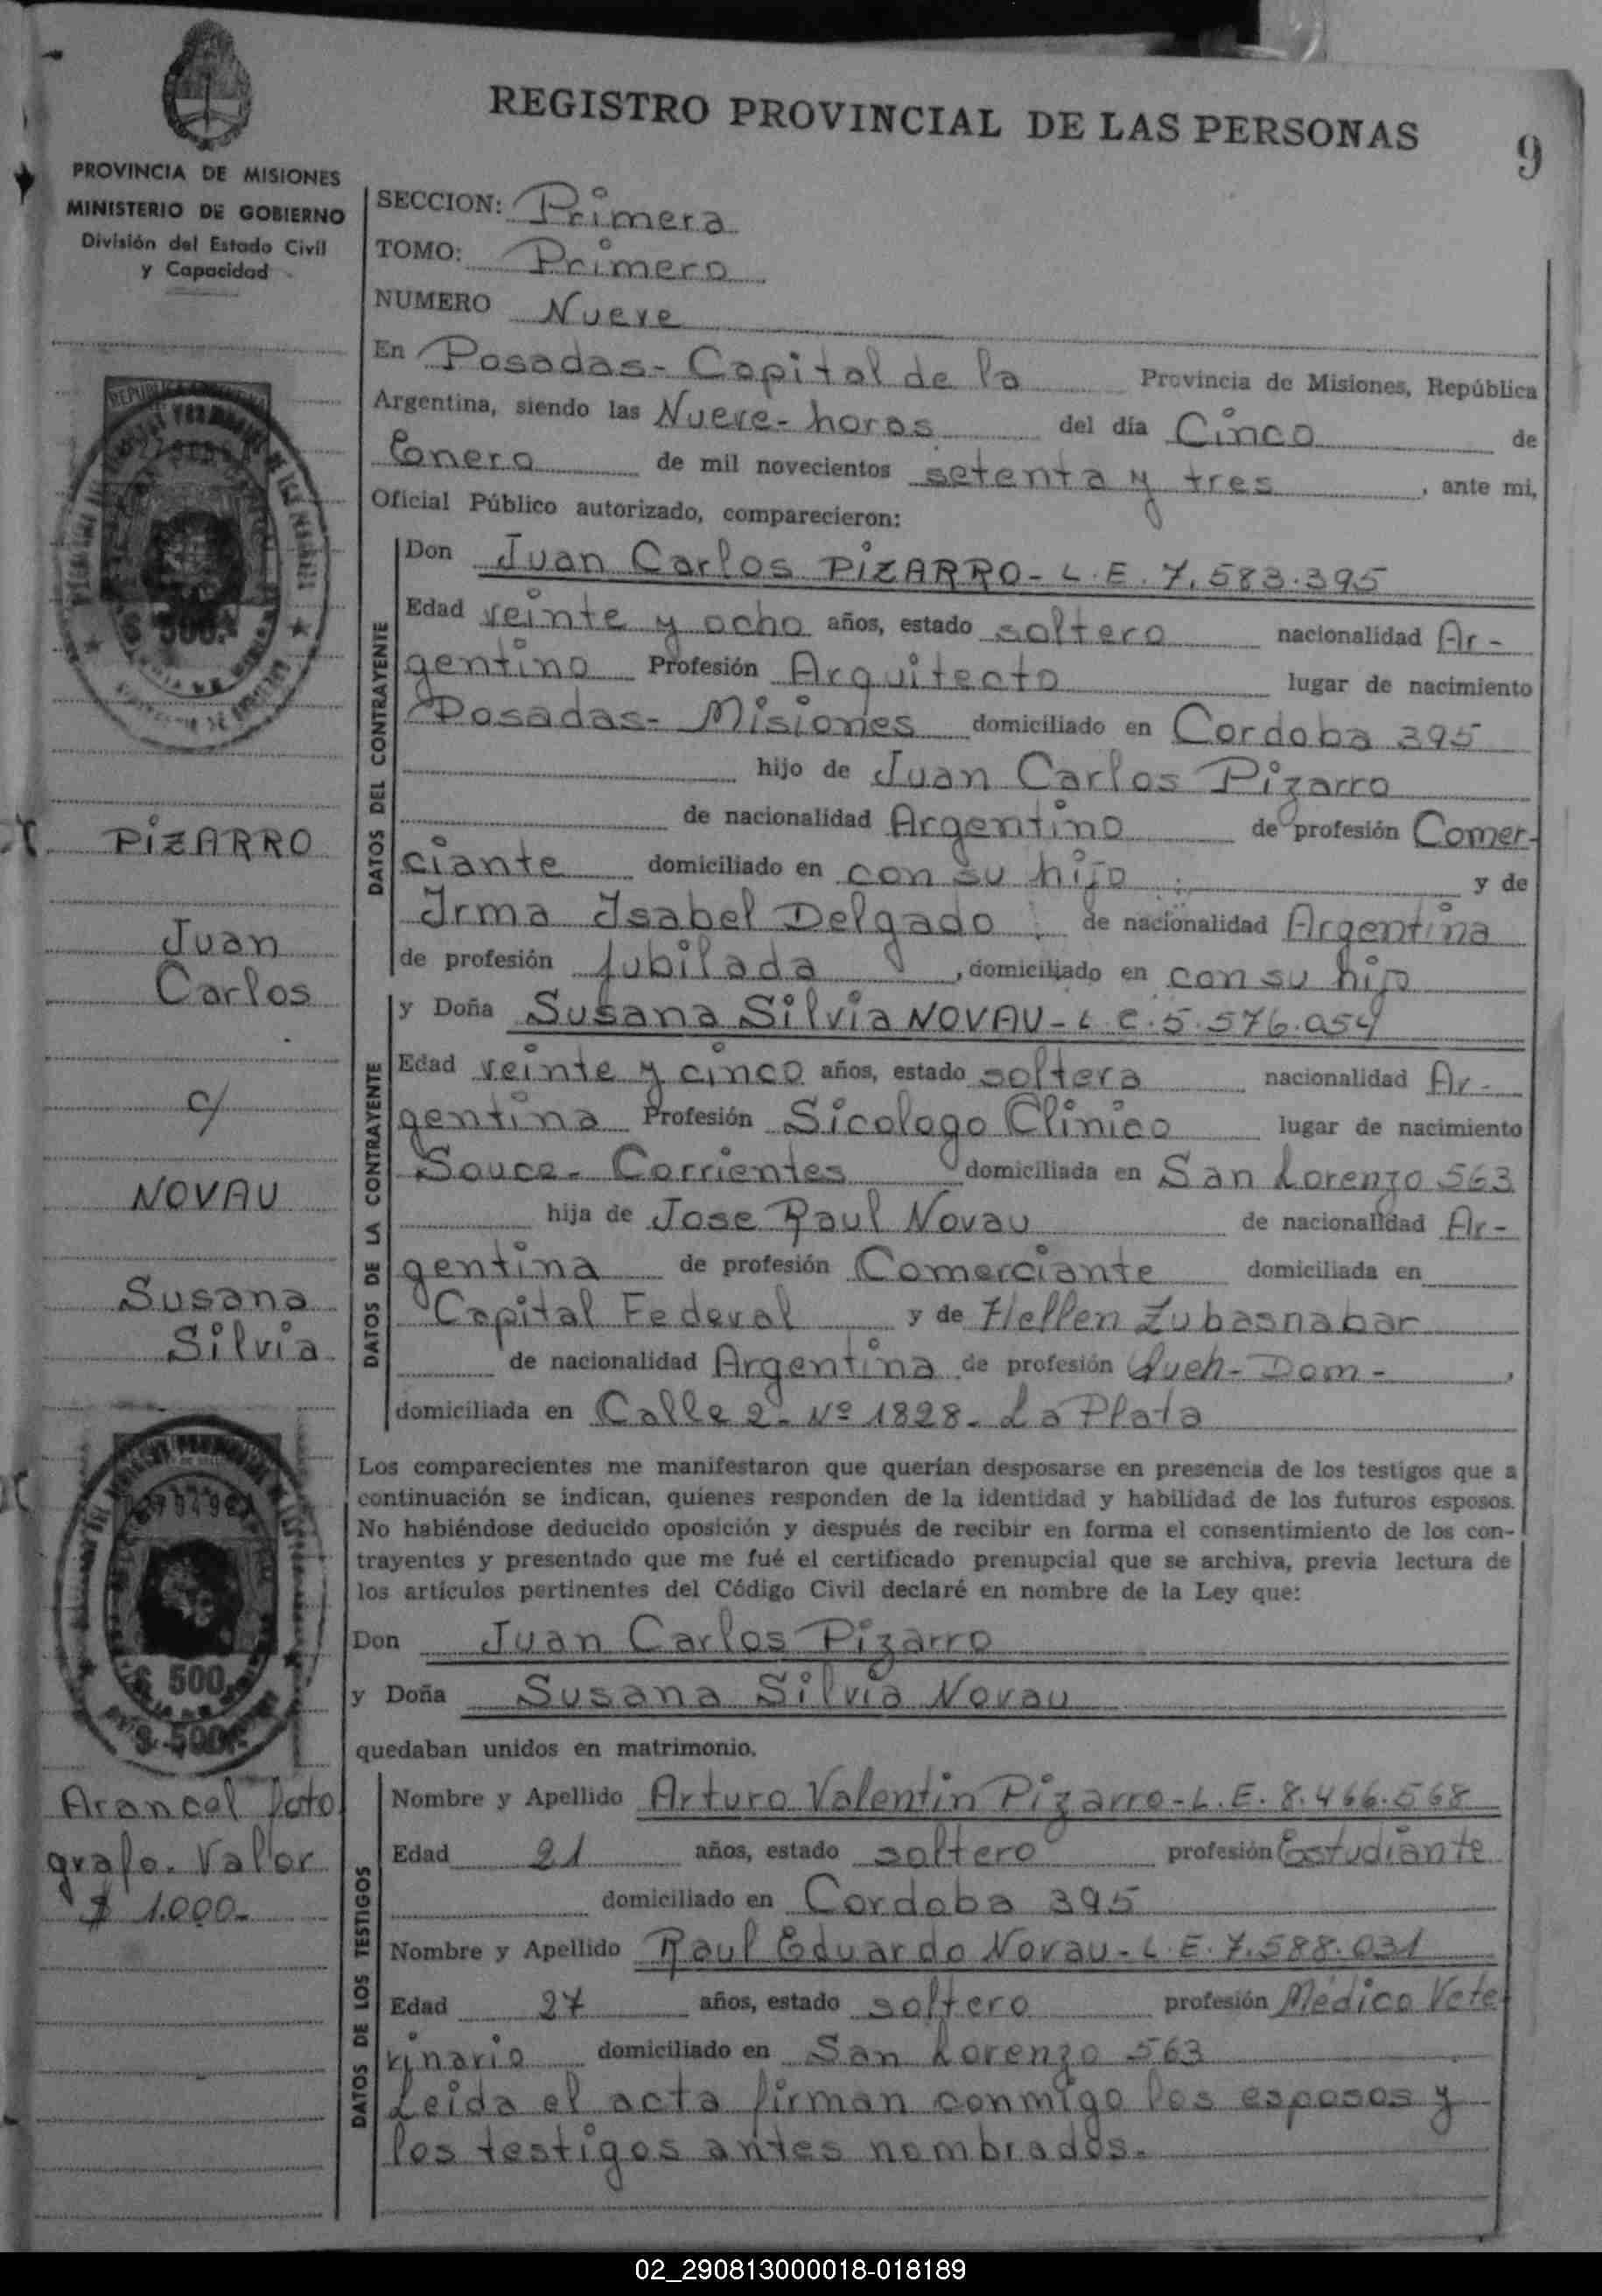 REGISTRO PROVINCIAL DE LAS PERSONAS
9
PROVINCIA DE MISIONES
MINISTERIO DE GOBIERNO
División del Estado Civil
y Capacidad
SECCION: Primera
TOMO: Primero
NUMERO Nueve
En Posadas - Capital de la Provincia de Misiones, República
Argentina, siendo las Nueve - horas del día Cinco de
Enero de mil novecientos setenta y tres, ante mi,
Oficial Público autorizado, comparecieron:
DATOS DEL CONTRAYENTE
Don Juan Carlos PIZARRO - L.E. 7.583.395
Edad veinte y ocho años, estado soltero nacionalidad Ar-
gentino Profesión Arquitecto lugar de nacimiento
Posadas - Misiones domiciliado en Cordoba 395
hijo de Juan Carlos Pizarro
de nacionalidad Argentino de profesión Comer-
ciante domiciliado en con su hijo y de
Irma Isabel Delgado de nacionalidad Argentina
de profesión Jubilada, domiciliado en con su hijo
DATOS DE LA CONTRAYENTE
y Doña Susana Silvia NOVAU - L.C. 5.576.054
Edad veinte y cinco años, estado soltera nacionalidad Ar-
gentina Profesión Sicologo Clinico lugar de nacimiento
Sauce - Corrientes domiciliada en San Lorenzo 563
hija de Jose Raul Novau de nacionalidad Ar-
gentina de profesión Comerciante domiciliada en
Capital Federal y de Hellen Zubasnabar
de nacionalidad Argentina de profesión Queh - Dom -,
domiciliada en Calle 2 - Nº 1828 - La Plata
Los comparecientes me manifestaron que querían desposarse en presencia de los testigos que a
continuación se indican, quienes responden de la identidad y habilidad de los futuros esposos.
No habiéndose deducido oposición y después de recibir en forma el consentimiento de los con-
trayentes y presentado que me fué el certificado prenupcial que se archiva, previa lectura de
los artículos pertinentes del Código Civil declaré en nombre de la Ley que:
Don Juan Carlos Pizarro
y Doña Susana Silvia Novau
quedaban unidos en matrimonio.
DATOS DE LOS TESTIGOS
Nombre y Apellido Arturo Valentin Pizarro - L.E. 8.466.568
Edad 21 años, estado soltero profesión Estudiante
domiciliado en Cordoba 395
Nombre y Apellido Raul Eduardo Novau - L.E. 7.588.031
Edad 27 años, estado soltero profesión Médico Vete
rinario domiciliado en San Lorenzo 563
Leida el acta firman conmigo los esposos y
los testigos antes nombrados.
PIZARRO
Juan
Carlos
c/
NOVAU
Susana
Silvia
$ 500
$ 500
Arancel Dato
grafo. Valor
$ 1.000-
02_290813000018-018189